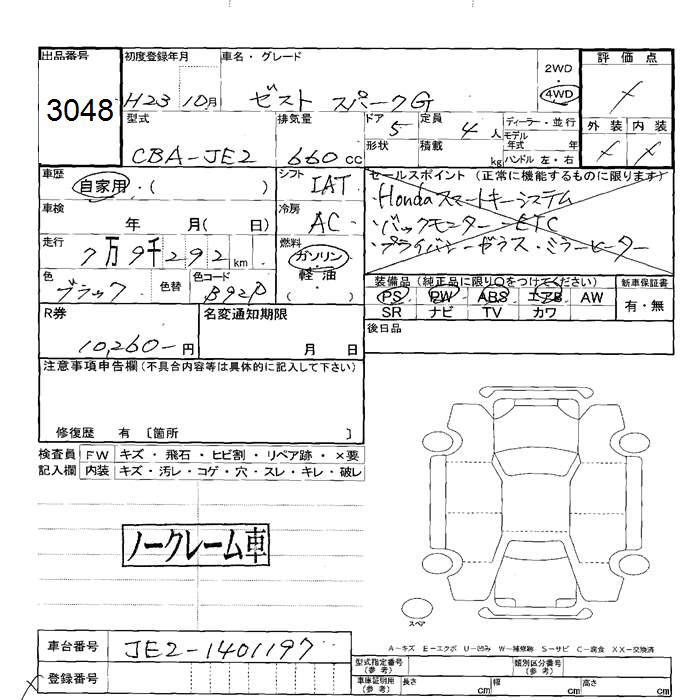 出品番号 初度登録年月 車名・グレード 2WD ・ 4WD 評価点
3048 H23 10月 ゼスト スパークG
型式 排気量 ドア 5 定員 4 人 ディーラー・並行 外装 内装
CBA-JE2 660 cc 形状 積載 kg モデル年式 年 ハンドル 左・右
車歴 自家用・( ) シフト IAT セールスポイント (正常に機能するものに限ります)
・Hondaスマートキーシステム
車検 年 月( 日) 冷房 AC ・バックモニター・ETC
走行 7万9千292 km 燃料 ガソリン 軽油 ( ) ・プライバシーガラス・ミラーヒーター
色 ブラック 色替 色コード B92P 装備品 (純正品に限り○をつけてください) 新車保証書
PS PW ABS エアB AW 有・無
SR ナビ TV カワ
R券 10,260- 円 名変通知期限 月 日 後日品
注意事項申告欄 (不具合内容等は具体的に記入して下さい)
修復歴 有 〔箇所 〕
検査員 FW キズ・飛石・ヒビ割・リペア跡・×要
記入欄 内装 キズ・汚レ・コゲ・穴・スレ・キレ・破レ
ノークレーム車
スペア
A−キズ E−エクボ U−凹み W−補修跡 S−サビ C−腐食 XX−交換済
車台番号 JE2-1401197
型式指定番号 (参考) 類別区分番号 (参考)
登録番号 車庫証明用 (参考) 長さ cm 幅 cm 高さ cm